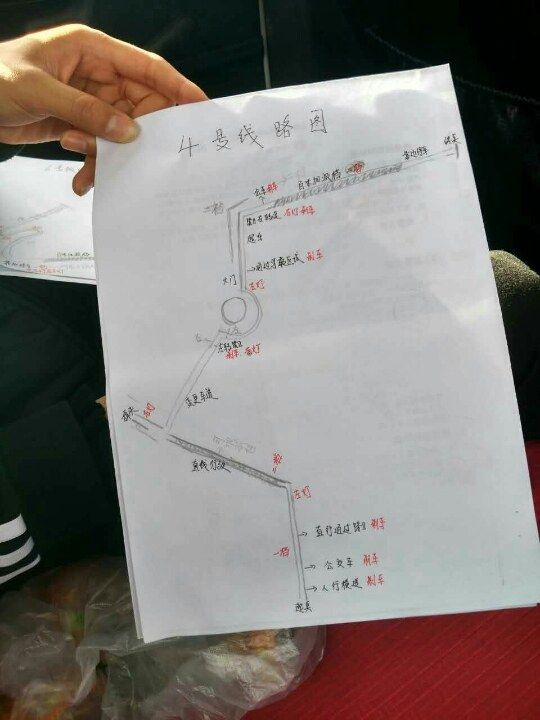 4号线路图
终点
靠边停车
百米加减档
会车 刹车
二档
路口右转弯 右灯 刹车
→通过学校区域 刹车
大门
左灯
左转路口
刹车
变更车道
掉头
左灯
直线行驶
左灯
一档
→直行通过路口 刹车
→公交车 刹车
→人行横道 刹车
起点